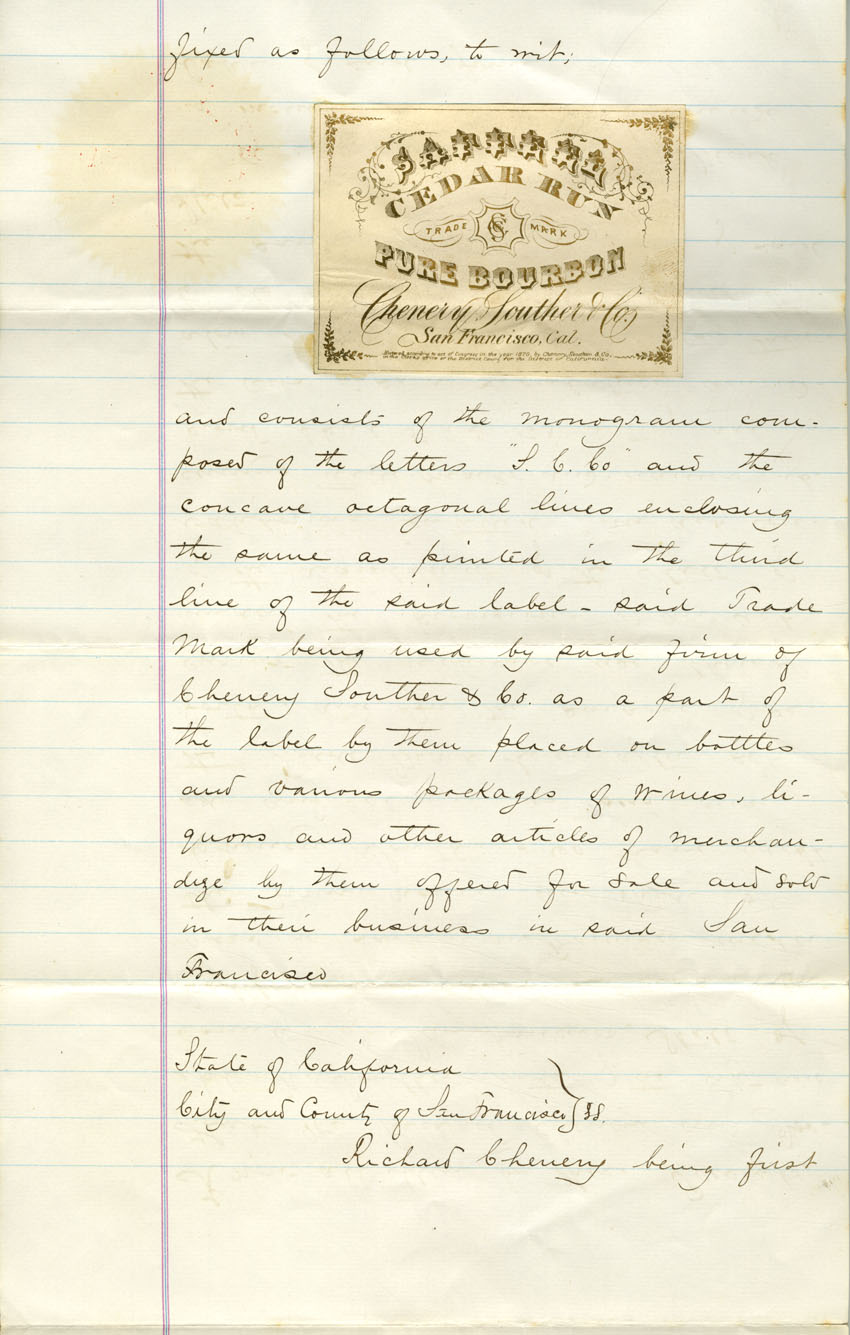 fixed as follows, to wit;
SAFFELL
CEDAR RUN
TRADE MARK
PURE BOURBON
Chenery, Souther & Co.
San Francisco, Cal.
Entered according to act of Congress in the year 1870, by Chenery, Souther & Co.
in the Clerks office of the District Court for the District of California.
and consists of the monogram com-
posed of the letters "S. C. Co" and the
concave octagonal lines enclosing
the same as printed in the third
line of the said label - said Trade
Mark being used by said firm of
Chenery Souther & Co. as a part of
the label by them placed on bottles
and various packages of wines, li-
quors and other articles of merchan-
dize by them offered for sale and sold
in their business in said San
Francisco
State of California
City and County of San Francisco } SS.
Richard Chenery being first